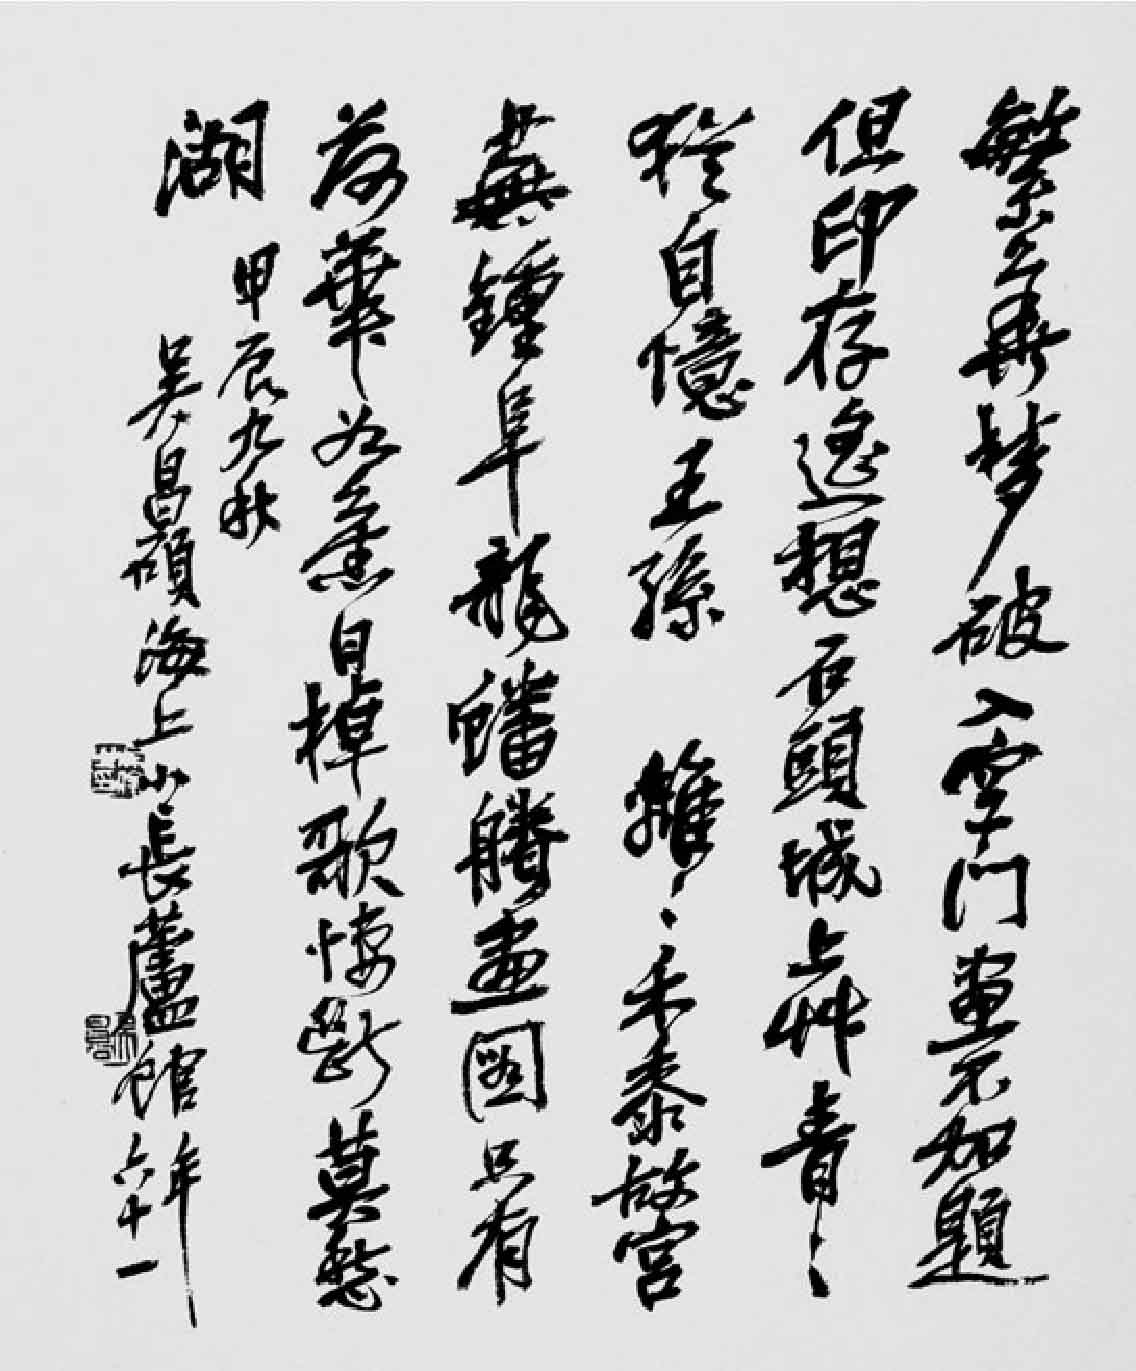 繁華夢破入空門畫不加題
但印存遙想石頭城上艸青〻
猶自憶王孫 離〻禾黍故宮
蕪鍾阜龍蟠賸畫圖只有
荷華舊日棹歌悽斷莫愁
湖 甲辰九秋
吳昌碩海上小長蘆館年六十一